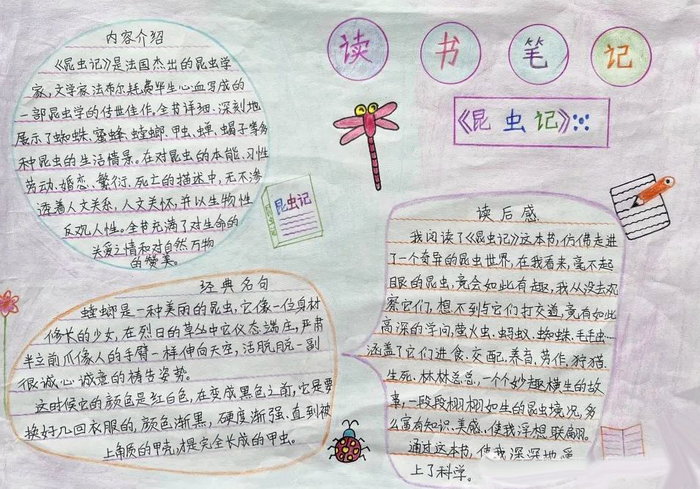 读书笔记
《昆虫记》
内容介绍
《昆虫记》是法国杰出的昆虫学
家,文学家法布尔耗费毕生心血写成的
一部昆虫学的传世佳作,全书详细、深刻地
展示了蜘蛛、蜜蜂、螳螂、甲虫、蝉、蝎子等多
种昆虫的生活情景。在对昆虫的本能、习性
劳动、婚恋、繁衍、死亡的描述中,无不渗
透着人文关系,人文关怀,并以生物性
反观人性。全书充满了对生命的
关爱之情和对自然万物
的赞美。
昆虫记
经典名句
螳螂是一种美丽的昆虫,它像一位身材
修长的少女,在烈日的草丛中它仪态端庄,严肃
半立前爪像人的手臂一样伸向天空,活脱脱一副
很诚心诚意的祷告姿势。
这时候它的颜色是红白色,在变成黑色之前,它是要
换好几回衣服的,颜色渐黑,硬度渐强、直到被
上角质的甲壳才是完全长成的甲虫。
读后感
我阅读了《昆虫记》这本书,仿佛走进
了一个奇异的昆虫世界,在我看来,毫不起
眼的昆虫,竟会如此有趣,我从没去观
察它们,想不到与它们打交道,竟有如此
高深的学问,萤火虫、蚂蚁、蜘蛛、毛毛虫…
涵盖了它们进食、交配、养育、劳作、狩猎、
生死、林林总总,一个个妙趣横生的故
事,一段段栩栩如生的昆虫境况,多
么富有知识、美感、使我浮想联翩。
通过这本书,使我深深地
上了科学。